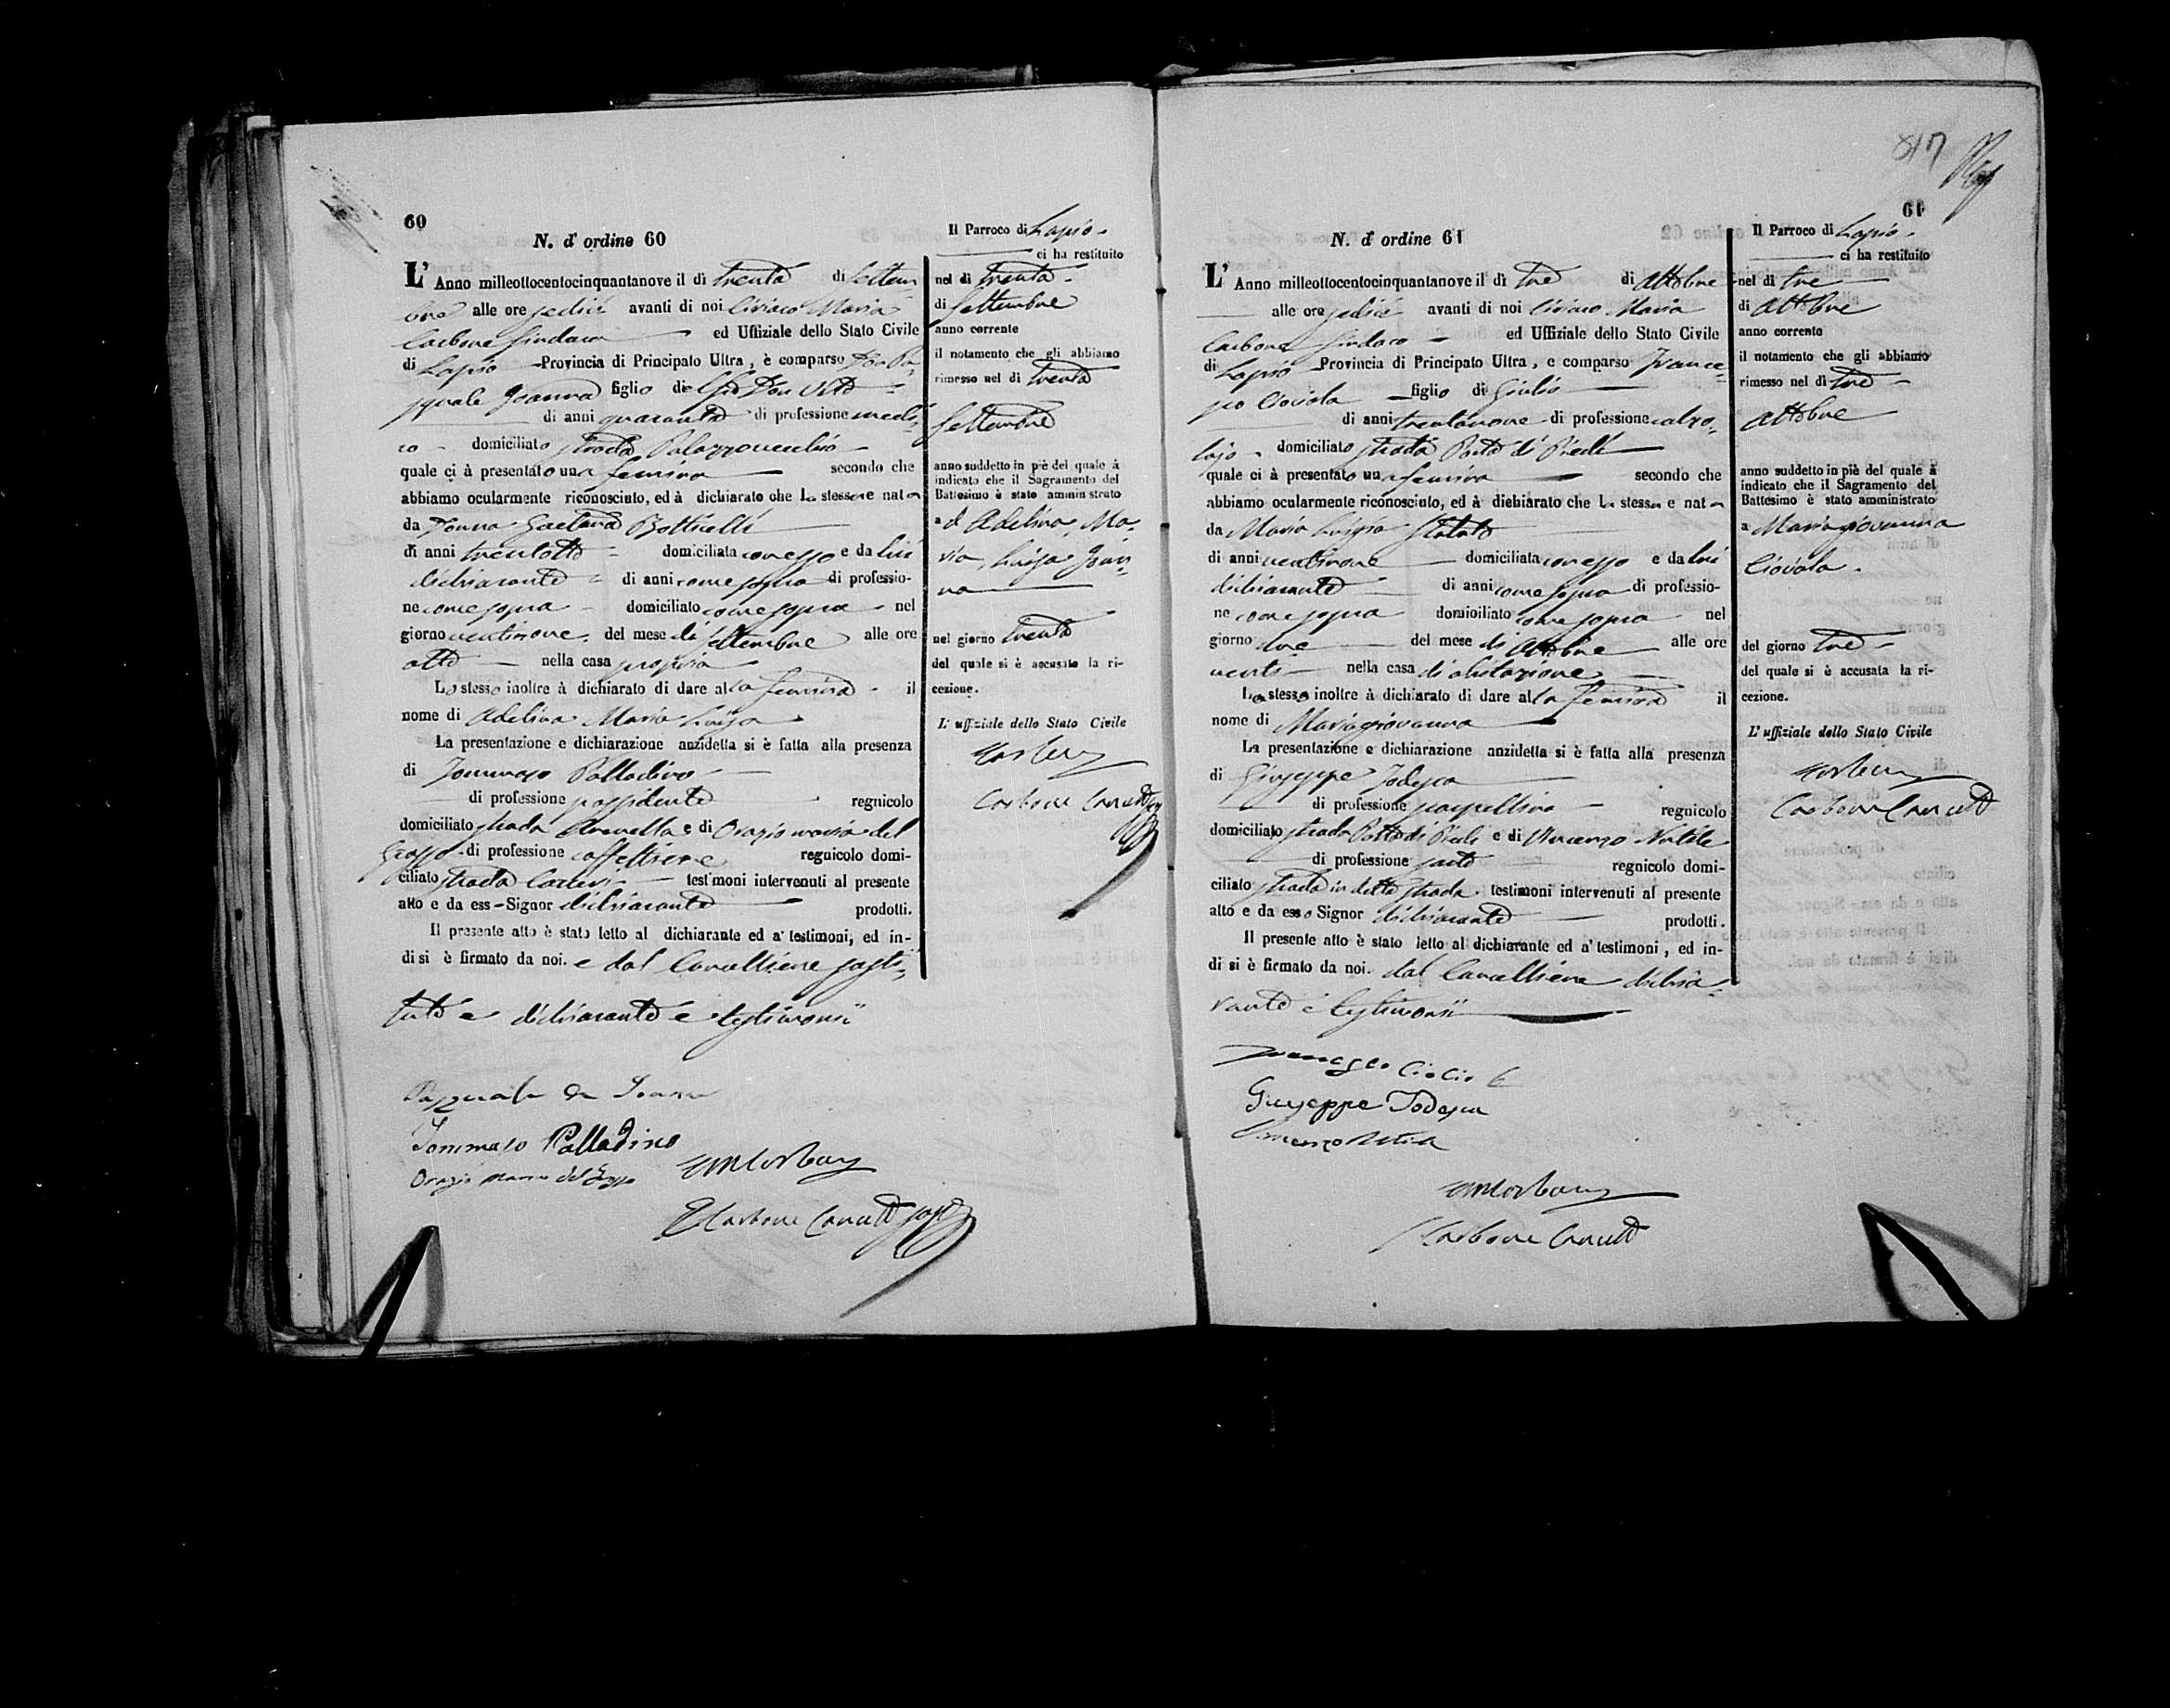 60
N. d' ordine 60
L' Anno milleottocentocinquantanove il dì trenta di Settem
bre alle ore sedici avanti di noi Ciriaco Maria
Carbone Sindaco ed Uffiziale dello Stato Civile
di Lapio Provincia di Principato Ultra, è comparso Don Pa-
squale Joanna figlio di Don Vito
di anni quaranta di professione medi-
co domiciliato strada Palazzovecchio
quale ci à presentato una femina secondo che
abbiamo ocularmente riconosciuto, ed à dichiarato che la stessa e nata
da Donna Gaetana Botticelli
di anni trentotto domiciliata con esso e da lui
dichiarante di anni come sopra di professio-
ne come sopra domiciliato come sopra nel
giorno ventinove del mese di Settembre alle ore
otto nella casa propria
Lo stesso inoltre à dichiarato di dare alla femina il
nome di Adelina Maria Luisa
La presentazione e dichiarazione anzidetta si è fatta alla presenza
di Tommaso Palladino
di professione possidente regnicolo
domiciliato strada e di Orazio maria del
Grosso di professione caffettiere regnicolo domi-
ciliato strada testimoni intervenuti al presente
atto e da ess- Signor dichiarante prodotti.
Il presente atto è stato letto al dichiarante ed a' testimoni, ed in-
di si è firmato da noi. e dal Cancelliere sosti-
tuto e dichiarante e testimonii
Tommaso Palladino
Orazio Maria del Grosso
Carbone
Il Parroco di Lapio
ci ha restituito
nel di trenta
di Settembre
anno corrente
il notamento che gli abbiamo
rimesso nel di trenta
Settembre
anno suddetto in piè del quale à
indicato che il Sagramento del
Battesimo è stato amministrato
ad Adelina, Ma-
ria, Luisa Joan-
na
nel giorno trenta
del quale si è accusato la ri-
cezione.
L' uffiziale dello Stato Civile
Carbone
817
61
N. d' ordine 61
L' Anno milleottocentocinquantanove il di tre di Ottobre
alle ore sedici avanti di noi Ciriaco Maria
Carbone Sindaco ed Uffiziale dello Stato Civile
di Lapio Provincia di Principato Ultra, e comparso France-
sco Ciociola figlio di Giulio
di anni trentanove di professione calzo-
lajo domiciliato strada Porta di Piedi
quale ci à presentato una femina secondo che
abbiamo ocularmente riconosciuto, ed à dichiarato che la stessa e nata
da Maria Luigia
di anni ventinove domiciliata con esso e da lui
dichiarante di anni come sopra di professio-
ne come sopra domiciliato come sopra nel
giorno due del mese di Ottobre alle ore
venti nella casa di abitazione
Lo stesso inoltre à dichiarato di dare alla femina il
nome di Mariagiovanna
La presentazione e dichiarazione anzidetta si è fatta alla presenza
di Giuseppe Todesca
di professione scarpellino regnicolo
domiciliato strada Porta di Piedi e di Vincenzo Natile
di professione sarto regnicolo domi-
ciliato strada in detta strada testimoni intervenuti al presente
atto e da esso Signor dichiarante prodotti.
Il presente atto è stato letto al dichiarante ed a' testimoni, ed in-
di si è firmato da noi. dal Cancelliere dichia-
rante e testimonii
Giuseppe Todesca
Carbone
Il Parroco di Lapio
ci ha restituito
nel di tre
di Ottobre
anno corrente
il notamento che gli abbiamo
rimesso nel di tre
Ottobre
anno suddetto in piè del quale à
indicato che il Sagramento del
Battesimo è stato amministrato
a Mariagiovanna
Ciociola
del giorno tre
del quale si è accusata la ri-
cezione.
L' uffiziale dello Stato Civile
Carbone